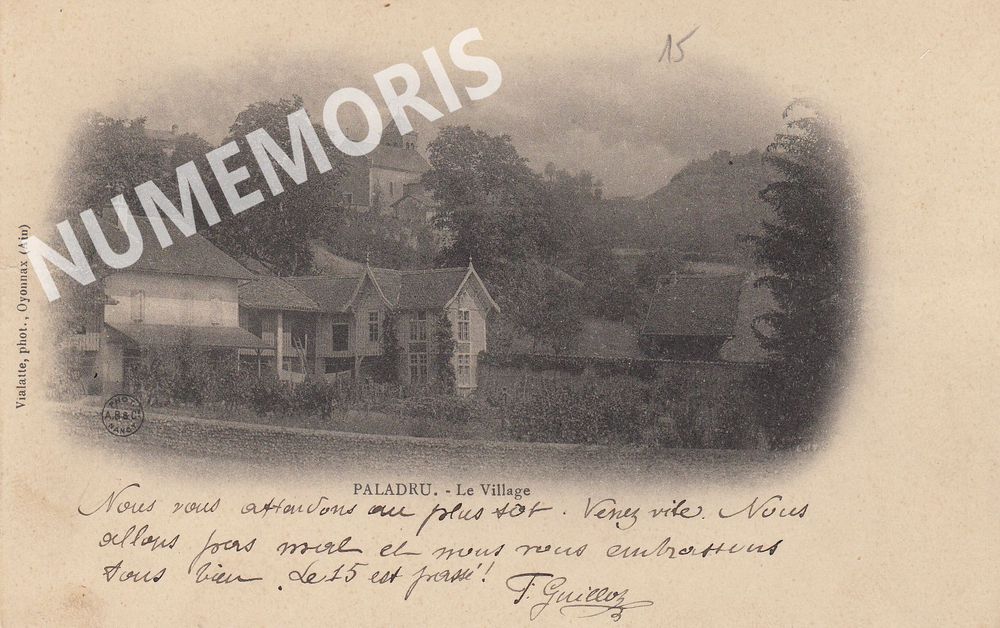 15
NUMEMORIS
Vialatte, phot., Oyonnax (Ain)
PHOT
A.B&C°
NANCY
PALADRU. - Le Village
Nous vous attendons au plus tôt. Venez vite. Nous
allons pas mal et nous vous embrassons
tous bien. Le 15 est passé!
F. Guilloz